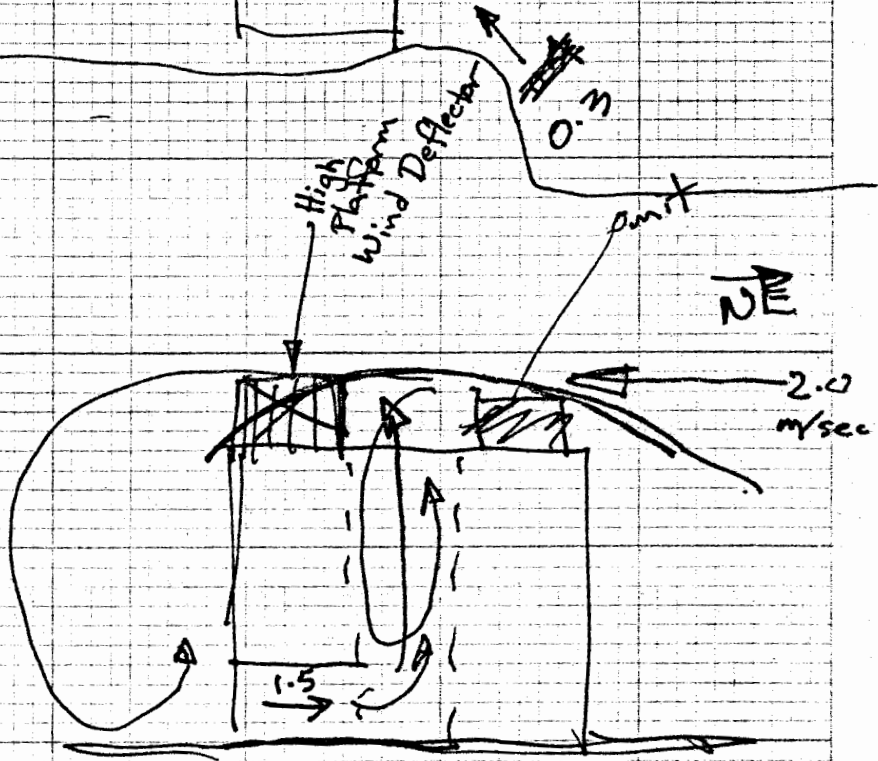 0.3
High
Platform
Wind Deflector
omit
NE
2.0
m/sec
1.5